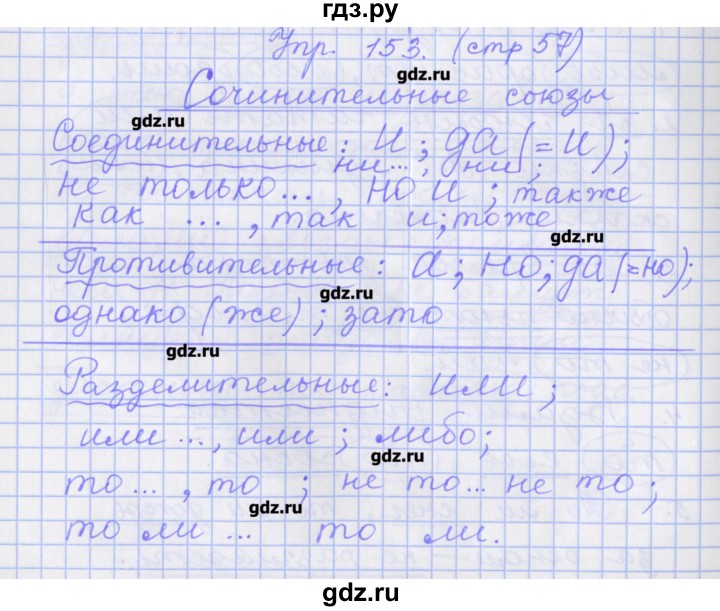 гдз.ру
Упр. 153. (стр 57)
gdz.ru
Сочинительные союзы
gdz.ru
Соединительные: и; да (= и);
ни..., ни;
не только..., но и; также
как ..., так и; тоже
gdz.ru
Противительные: а; но; да (=но);
gdz.ru
однако (же); зато
gdz.ru
Разделительные: или;
или ..., или; либо;
gdz.ru
то ..., то; не то... не то;
gdz.ru
то ли ... то ли.
gdz.ru